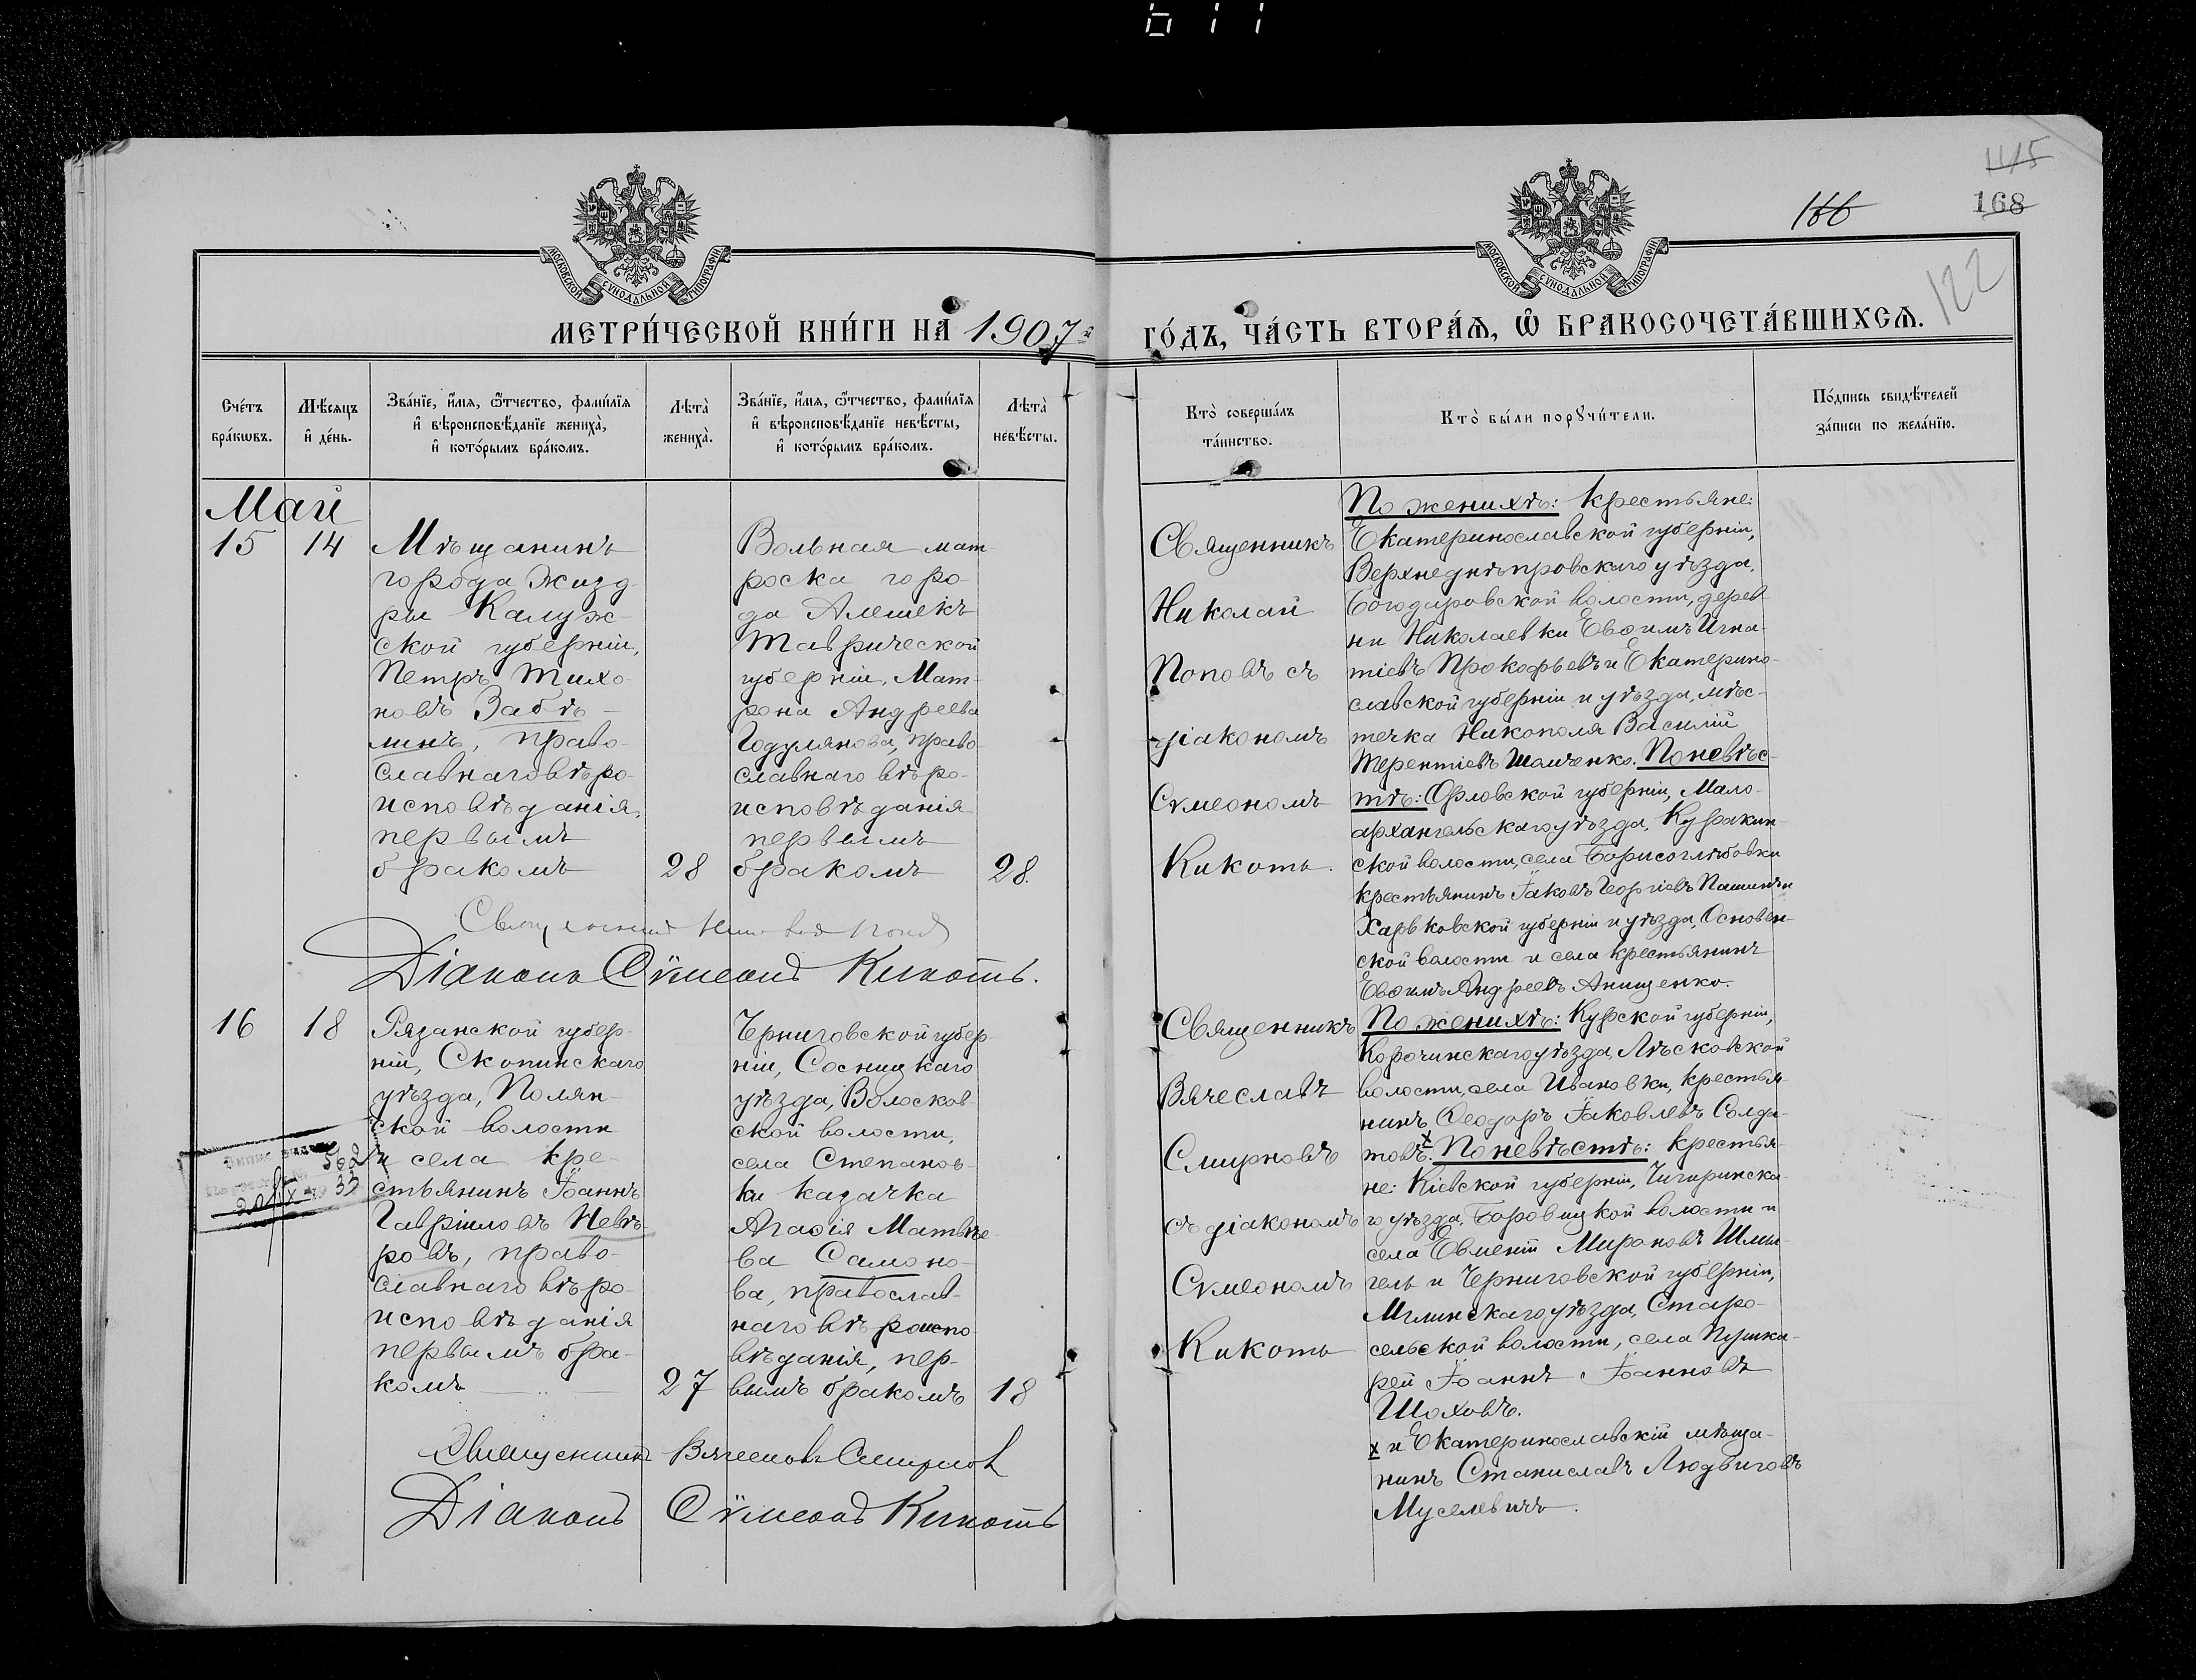 611
115
168
166
122
МОСКОВСКОЙ СѴНОДАЛЬНОЙ ТИПОГРАФІИ
МОСКОВСКОЙ СѴНОДАЛЬНОЙ ТИПОГРАФІИ
МЕТРИ́ЧЕСКОЙ КНИ́ГИ НА 1907й
ГО́ДЪ, ЧА́СТЬ ВТОРА́Ѧ, Ѽ БРАКОСОЧЕТА́ВШИХСѦ.
Сче́тъ
бра́кѡвъ.
Мѣ́сѧцъ
и҆ де́нь.
Зва́нїе, и҆́мѧ, ѻ҆́тчество, фами́лїѧ
и҆ вѣроисповѣ́данїе жениха̀,
и҆ кото́рымъ бра́комъ.
Лѣта̀
жениха̀.
Зва́нїе, и҆́мѧ, ѻ҆́тчество, фами́лїѧ
и҆ вѣроисповѣ́данїе невѣ́сты,
и҆ кото́рымъ бра́комъ.
Лѣта̀
невѣ́сты.
Кто̀ соверша́лъ
та́инство.
Кто̀ бы́ли порꙋчи́тели.
По́дпись свидѣ́телей
за́писи по жела́нїю.
Май
15
14
Мѣщанинъ
города Жизд-
ры Калуж-
ской губерніи,
Петръ Тихо-
новъ Забѣ-
линъ, право-
славнаго вѣро-
исповѣданія,
первымъ
бракомъ
28
Вольная мат-
роска горо-
да Алешекъ
Таврической
губерніи, Мат-
рона Андреева
Годулянова, право-
славнаго вѣро-
исповѣданія
первымъ
бракомъ
28.
Священникъ
Николай
Поповъ съ
діакономъ
Сѵмеономъ
Кикоть.
По женихѣ: крестьяне:
Екатеринославской губерніи,
Верхнеднѣпровскаго уѣзда,
Богодаровской волости, дерев-
ни Николаевки Евѳимъ Игна-
тіевъ Прокофьевъ и Екатерино-
славской губерніи и уѣзда, мѣс-
течка Никополя Василій
Терентіевъ Шамченко. По невѣс-
тѣ: Орловской губерніи, Мало-
архангельскаго уѣзда, Куракин-
ской волости, села Борисоглѣбовки
крестьянинъ Іаковъ Георгіевъ Пашинъ и
Харьковской губерніи и уѣзда, Основен-
ской волости и села крестьянинъ
Евѳимъ Андреевъ Анищенко.
Священникъ Николай Поповъ
Діаконъ Сѵмеонъ Кикоть.
16
18
Рязанской губер-
ніи, Скопинскаго
уѣзда, Полян-
ской волости
и села кре-
стьянинъ Іоаннъ
Гавріиловъ Невѣ-
ровъ, право-
славнаго вѣро-
исповѣданія
первымъ бра-
комъ
27
Черниговской губер-
ніи, Сосницкаго
уѣзда, Волосков-
ской волости,
села Степанов-
ки казачка
Агаѳія Матвѣе-
ва Самоно-
ва, православ-
наго вѣроиспо-
вѣданія, пер-
вымъ бракомъ
18
Священникъ
Вячеславъ
Смирновъ
съ діакономъ
Сѵмеономъ
Кикоть
По женихѣ: Курской губерніи,
Корочинскаго уѣзда, Лѣсковской
волости, села Ивановки, крестья-
нинъ Ѳеодоръ Іаковлевъ Солда-
товъ. х По невѣстѣ: крестья-
не: Кіевской губерніи, Чигиринска-
го уѣзда, Боровицкой волости и
села Евменій Мироновъ Шмы-
гель и Черниговской губерніи,
Мглинскаго уѣзда, Старо-
сельской волости, села Пушка-
рей Іоаннъ Іоанновъ
Шоховъ.
х и Екатеринославскій мѣща-
нинъ Станиславъ Людвиговъ
Муселевичъ.
562
33
Священникъ Вячеславъ Смирновъ
Діаконъ Сѵмеонъ Кикоть